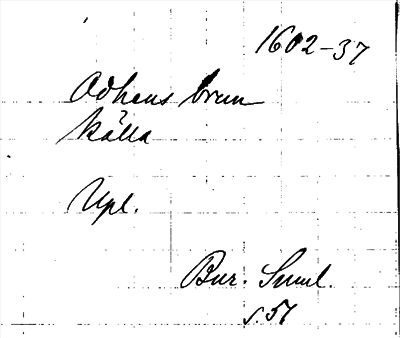 1602-37
Odhens brun
källa
Upl.
Bur. Suml.
s. 51